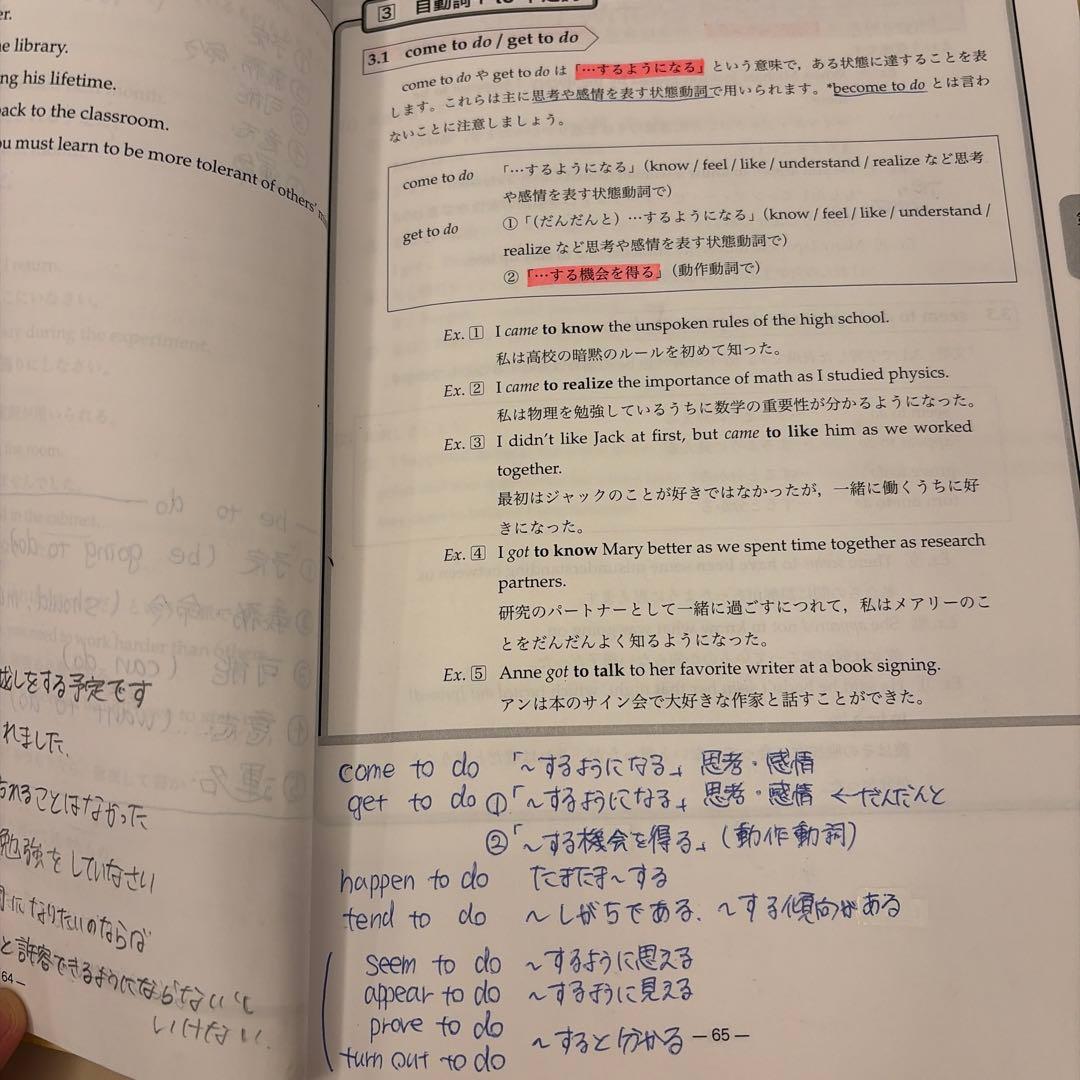 er.
e library.
ng his lifetime.
back to the classroom.
u must learn to be more tolerant of others'
64—
成しをする予定です
れました、
られることはなかった
勉強をしていなさい
になりたいのならば
と許容できるようにならない
いけない
3 自動詞
3.1 come to do / get to do
come to do や get to do は「…するようになる」という意味で，ある状態に達することを表
します。これらは主に思考や感情を表す状態動詞で用いられます。*become to do とは言わ
ないことに注意しましょう。
come to do 「…するようになる」（know / feel / like / understand / realize など思考
や感情を表す状態動詞で）
get to do ①「（だんだんと）…するようになる」（know / feel / like / understand /
realize など思考や感情を表す状態動詞で）
②「…する機会を得る」（動作動詞で）
Ex. 1 I came to know the unspoken rules of the high school.
私は高校の暗黙のルールを初めて知った。
Ex. 2 I came to realize the importance of math as I studied physics.
私は物理を勉強しているうちに数学の重要性が分かるようになった。
Ex. 3 I didn't like Jack at first, but came to like him as we worked
together.
最初はジャックのことが好きではなかったが，一緒に働くうちに好
きになった。
Ex. 4 I got to know Mary better as we spent time together as research
partners.
研究のパートナーとして一緒に過ごすにつれて，私はメアリーのこ
とをだんだんよく知るようになった。
Ex. 5 Anne got to talk to her favorite writer at a book signing.
アンは本のサイン会で大好きな作家と話すことができた。
come to do 「〜するようになる」 思考・感情
get to do ①「〜するようになる」 思考・感情 ←だんだんと
②「〜する機会を得る」（動作動詞）
happen to do たまたま〜する
tend to do 〜しがちである、〜する傾向がある
seem to do 〜するように思える
appear to do 〜するように見える
prove to do
turn out to do 〜すると分かる
—65—